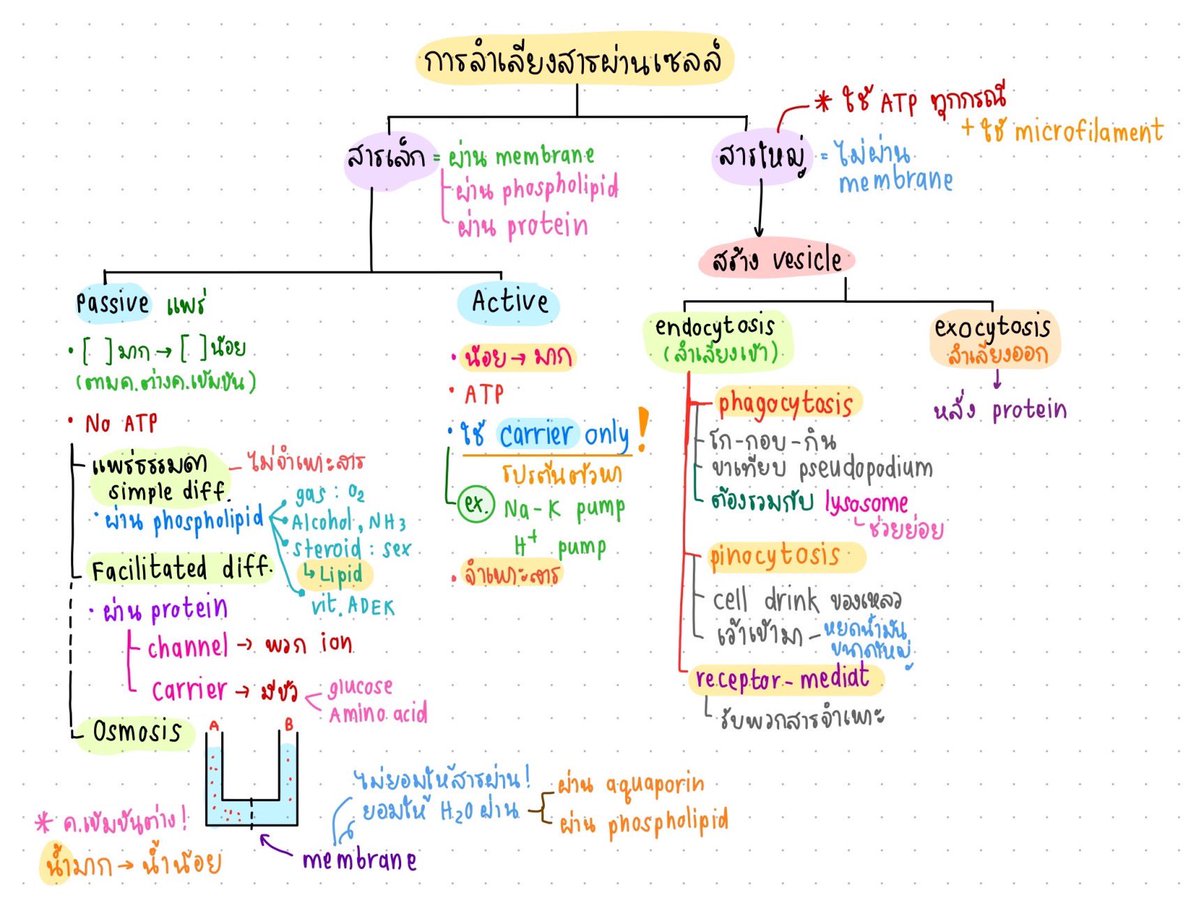 การลำเลียงสารผ่านเซลล์
* ใช้ ATP ทุกกรณี
+ ใช้ microfilament
สารเล็ก = ผ่าน membrane
ผ่าน phospholipid
ผ่าน protein
สารใหญ่ = ไม่ผ่าน
membrane
สร้าง vesicle
Passive แพร่
• [ ] มาก → [ ] น้อย
(ตามค.ต่างค.เข้มข้น)
• No ATP
แพร่ธรรมดา - ไม่จำเพาะสาร
simple diff.
• ผ่าน phospholipid
gas : O2
Alcohol, NH3
steroid : sex
↳ Lipid
vit. ADEK
Facilitated diff.
• ผ่าน protein
channel → พวก ion
carrier → มีขั้ว
glucose
Amino acid
Osmosis
A B
* ค.เข้มข้นต่าง!
น้ำมาก → น้ำน้อย
membrane
ไม่ยอมให้สารผ่าน!
ยอมให้ H2O ผ่าน
ผ่าน aquaporin
ผ่าน phospholipid
Active
• น้อย → มาก
• ATP
• ใช้ carrier only!
โปรตีนตัวพา
ex. Na-K pump
H+ pump
• จำเพาะสาร
endocytosis
(ลำเลียงเข้า)
phagocytosis
โก-กอบ-กิน
ขาเทียบ pseudopodium
ต้องรวมกับ lysosome
ช่วยย่อย
pinocytosis
cell drink ของเหลว
เว้าเข้ามา - หยดน้ำมัน
ขนาดใหญ่
receptor-mediat
รับพวกสารจำเพาะ
exocytosis
ลำเลียงออก
หลั่ง protein